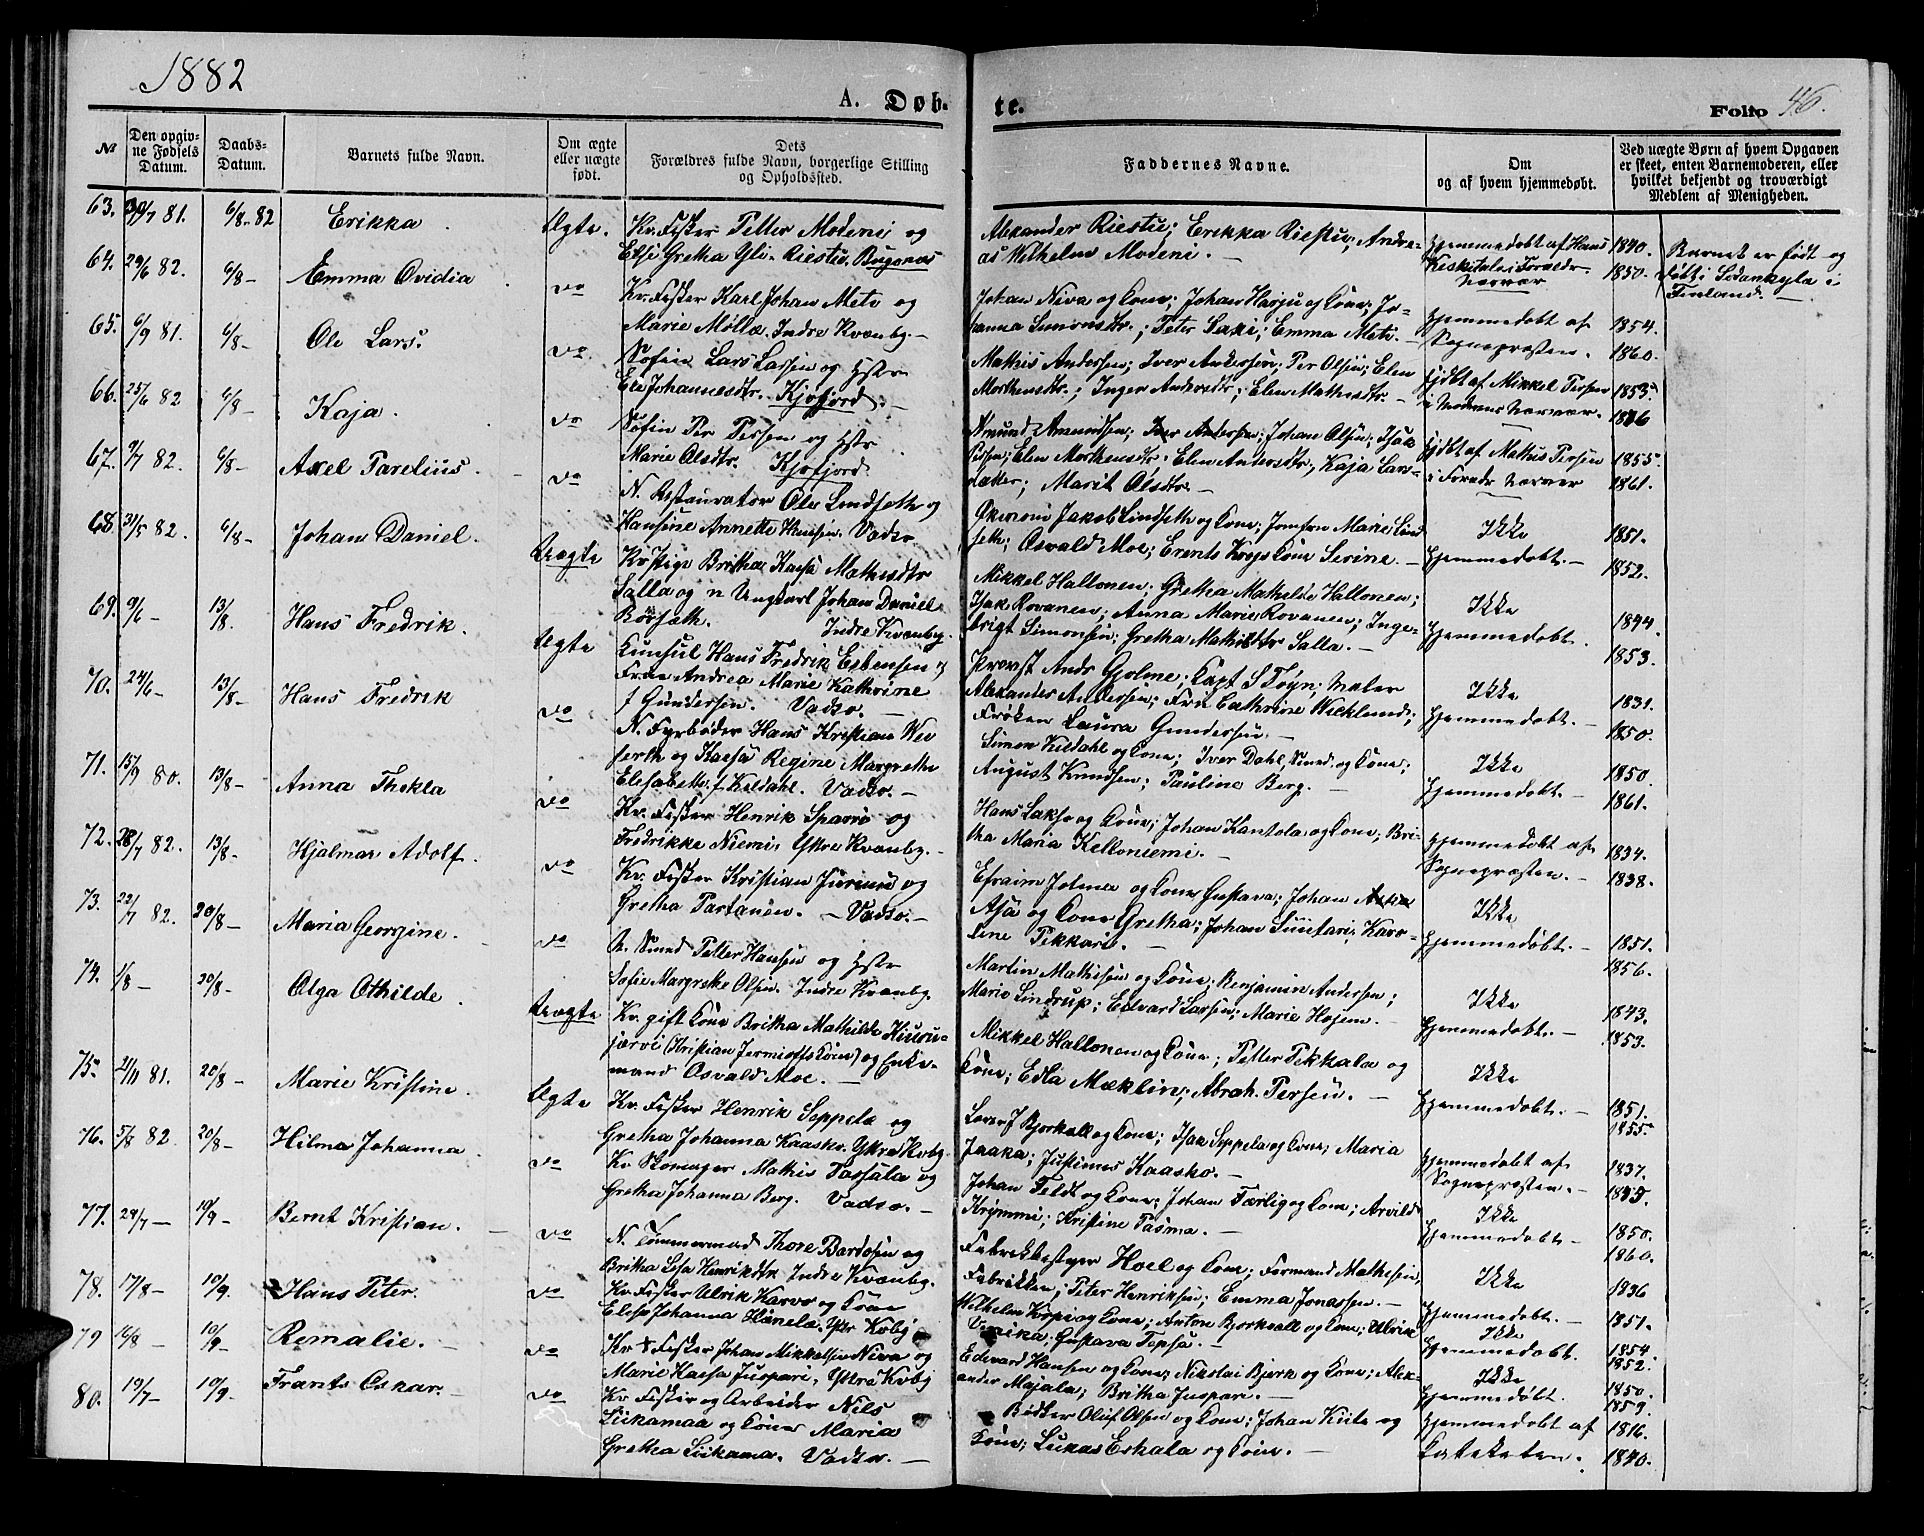 1882
A. Døb-
te.
Folio 46.
№
Den opgiv-
ne Fødsels
Datum.
Daabs-
Datum.
Barnets fulde Navn.
Om ægte
eller uægte
født.
Dets
Forældres fulde Navn, borgerlige Stilling
og Opholdssted.
Faddernes Navne.
Om
og af hvem hjemmedøbt.
Ved uægte Børn af hvem Opgaven
er skeet, enten Barnemoderen, eller
hvilket bekjendt og troværdigt
Medlem af Menigheden.
63. /7 81. 6/8-82 Erikka Ægte. Kv. Fisker Petter Modeni og
Elsi Gretha Yli-Riesto. Bugønes
Alexander Riestu; Erikka Riestu; Andre-
as Wilhelm Modeni.
Hjemmedøbt af Hans
Keskitalo i Forældr.
Nærvær
1840.
1850.
Barnet er født og
døbt i Sodankyla i
Finland.
64. 29/6 82. 6/8- Emma Ovidia do Kv. Fisker Karl Johan Meto og
Marie Mølla. Indre Kvænby.
Johan Niva og Kone; Johan Harju og Kone; Jo-
hanna Simonsdtr.; Peter Saxi; Emma Meto.
Hjemmedøbt af
Sognepræsten.
1854.
1860.
65. 6/9 81. 6/8- Ole Lars. do. Søfin Lars Larsen og Hstr
Ele Johannesdtr. Kjøfjord.
Mathis Andersen; Iver Andersen; Per Olsen; Elen
Mortensdtr.; Inger Andersdtr; Elen Mathisdtr.
Hjdbt af Mikkel Persen
i Moderens Nærvær.
1853
66. 25/6 82 6/8- Kaja. do Søfin Per Persen og Hstr
Marie Olsdtr. Kjøfjord.
Amund Amundsen; Iver Andersen; Johan Olsen; Isak
Persen; Elen Mortensdtr. Elen Andersdtr, Kaja Lars-
datter; Marit Olsdtr.
Hjdbt af Mathis Persen
i Forældr Nærvær
1855.
1861.
67. 9/7 82. 6/8- Axel Parelius. do N. Restauratør Ole Lindseth og
Hansine Annette Knutsen. Vadsø.
Jakob Lindseth og Kone; Jomfru Marie Lind
seth; Osvald Moe; Kone Serine.
Ikke
Hjemmedøbt.
1851.
1852.
68. 31/5 82. 6/8- Johan Daniel. Uægte Kv Pige Britha Kaisa Mathisdtr
Salla og n Ungkarl Johan Daniel
Indre Kvænby.
Mikkel Hallonen; Gretha Mathilde Hallonen;
Isak Rovanen; Anna Marie Rovanen; Inge-
brigt Simonsen; Gretha Mathisdtr Salla.
Ikke
Hjemmedøbt.
1844.
1853.
69. 9/6- 13/8. Hans Fredrik. Ægte Konsul Hans Fredrik Esbensen og
Frue Andrea Marie Kathrine
f Gundersen. Vadsø.
Provst Andr Gjølme; Capt S Foyn; Maler
Alexander Andersen; Fru Cathrine Wicklund;
Frøken Laura Gundersen.
Ikke
Hjemmedøbt.
1831.
1850.
70. 24/6- 13/8- Hans Fredrik do N. Fyrbøder Hans Kristian Wei
serth og Kaesa Regine Margrethe
Elisabeth f Kildahl. Vadsø.
Simon Kildahl og Kone; Iver Dahl, Smed og Kone;
August Knudsen; Pauline Berg.
Ikke
Hjemmedøbt.
1850.
1861.
71. 15/9 80. 13/8- Anna Thekla do Kv. Fisker Henrik Sparro og
Fredrikke Niemi. Ytre Kvænby.
Hans Lakso og Kone; Johan Kantola og Kone; Bri-
tha Maria Kelloniemi.
Hjemmedøbt af
Sognepræsten.
1834.
1838.
72. 28/7 82. 13/8- Hjalmar Adolf. do Kv. Fisker Kristian Jurinus og
Gretha Partanen. Vadsø.
Efraim Jolma og Kone Gustava; Johan
Asa og Kone Gretha; Johan Siiitari; Karo-
line Pekkari.
Ikke
Hjemmedøbt.
1851.
1856.
73. 22/7 82. 20/8- Maria Georgine. do N. Smed Petter Hansen og Hstr
Sofie Margrethe Olsen. Indre Kvænby.
Martin Mathisen og Kone; Benjamin Andersen;
Marie Lindrup; Edvard Larsen; Marie Højem.
Ikke
Hjemmedøbt.
1843.
1853.
74. 1/8- 20/8- Olga Othilde. Uægte Kv. gift Kone Britha Mathilde Kiuru-
jærvi (Kristian Jermiassens Kone) og Enke-
mand Osvald Moe.
Mikkel Hallonen og Kone; Petter Pekkala og
Kone; Edla Mæklin; Abrah. Persen.
Ikke
Hjemmedøbt.
1851.
1855
75. 21/11 81. 20/8- Marie Kristine. Ægte Kv. Fisker Henrik Seppela og
Gretha Johanna Kaasko. Ytre Kvby.
Bjorkvall og Kone; Isak Seppela og Kone; Maria
Jaaka; Justines Kaasko.
Hjemmedøbt af
Sognepræsten.
1837.
76. 5/8 82. 20/8- Hilma Johanna. do Kv. Skomager Mathis Vassala og
Gretha Johanna Berg. Vadsø.
Johan Feldt og Kone; Johan Færlig og Kone; Arvild
Krymmi; Kristine Pasma.
Ikke
Hjemmedøbt
1850.
1860.
77. 24/7- 10/9- Bernt Kristian. do N. Tømmermand Thore Bardosen og
Britha Lesa Henriksdtr Indre Kvænby.
Fabrikbestyer Hoel og Kone; Formand Mathisen,
Fabrikken; Peter Henriksen; Emma Jonassen.
Ikke
Hjemmedøbt.
1836
1851.
78. 17/8- 10/9. Hans Peter. do Kv. Fisker Ulrik Karvo og Kone
Elisa Johanna Hænela. Ytr Kvby
Wilhelm Korpi og Kone; Anton Bjorkvall og Kone; Ulrik
Venika; Gustava Tepsa.
Ikke
Hjemmedøbt.
1854
1852.
79 16/8- 10/9- Romalie. do Kv Fisker Johan Mikkelsen Niva og
Marie Kaesa Juspari, Ytre Kvby
Edvard Hansen og Kone; Nikolai Bjørk og Kone; Alex-
ander Majala; Britha Juspari.
Ikke
Hjemmedøbt.
1850.
1859.
80. 19/7- 10/9- Frants Oskar. do Kv Fisker og Arbeider Nils
Siikamaa og Kone Maria
Gretha Siikama. Vadsø.
Bødker Oluf Olsen og Kone; Johan Kiite og
Kone; Lukas Eskala og Kone.
Hjemmedøbt af
Kateketen.
1816.
1840.